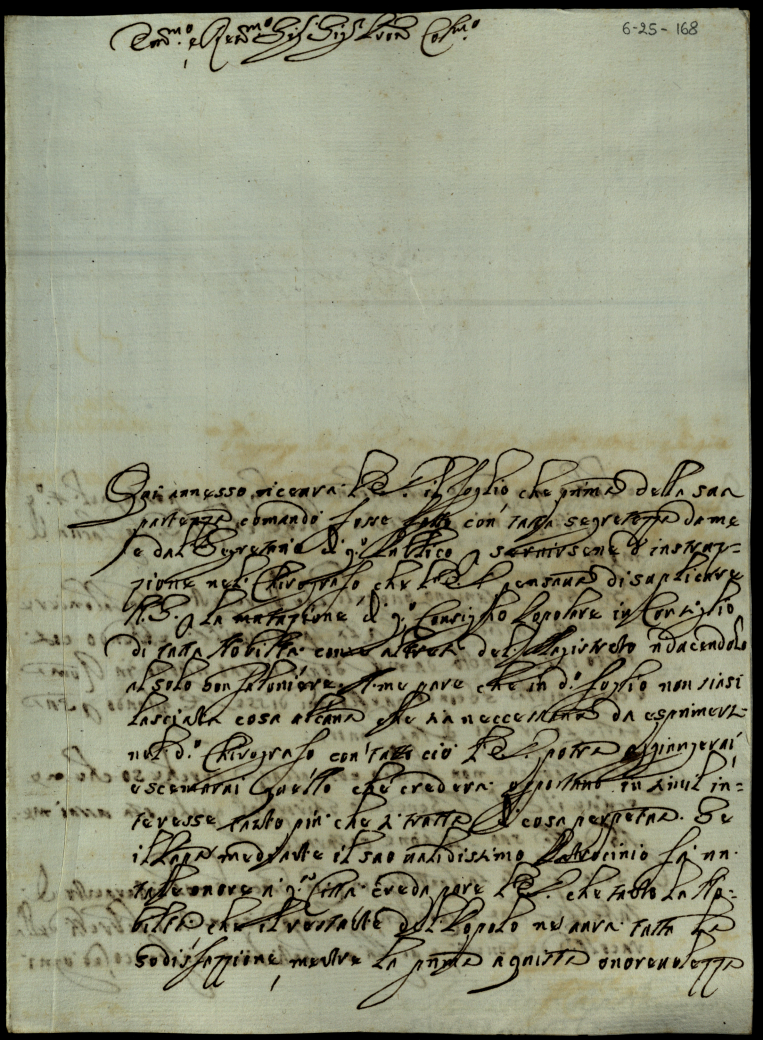 Em.mo e Rev.mo Sig.r Sig.r Pron Col.mo
6-25-168
Qui annesso riceverà l'E.V. il foglio che prima della sua
partenza comandò fosse fatto con tutta segretezza da me
e dal Segretario di q.o Publico p servirsene d'instruz=
zione nel Chirografo che l'E.V. pensava di suplicare
N.S. p la mutazione di q.o Consiglio Popolare in Consiglio
di tutta Nobiltà come altresì del Magistrato riducendolo
al solo Confaloniere. A me pare che in d.o foglio non siasi
lasciata cosa alcuna che sia neccessaria da esprimersi
nel d.o Chirografo con tutto ciò l'E.V. potrà aggiungervi
e scemarvi quello che crederà opportuno in simil in=
teresse tanto più che si tratta di cosa perpetua. Se
il Papa mediante il suo validissimo Patrocinio fa un
tale onore a q.a Città creda pure l'E.V. che tanto la No=
biltà che il restante del Popolo ne avrà tutta la
sodisfazzione, mentre la prima aquista onorevolezza